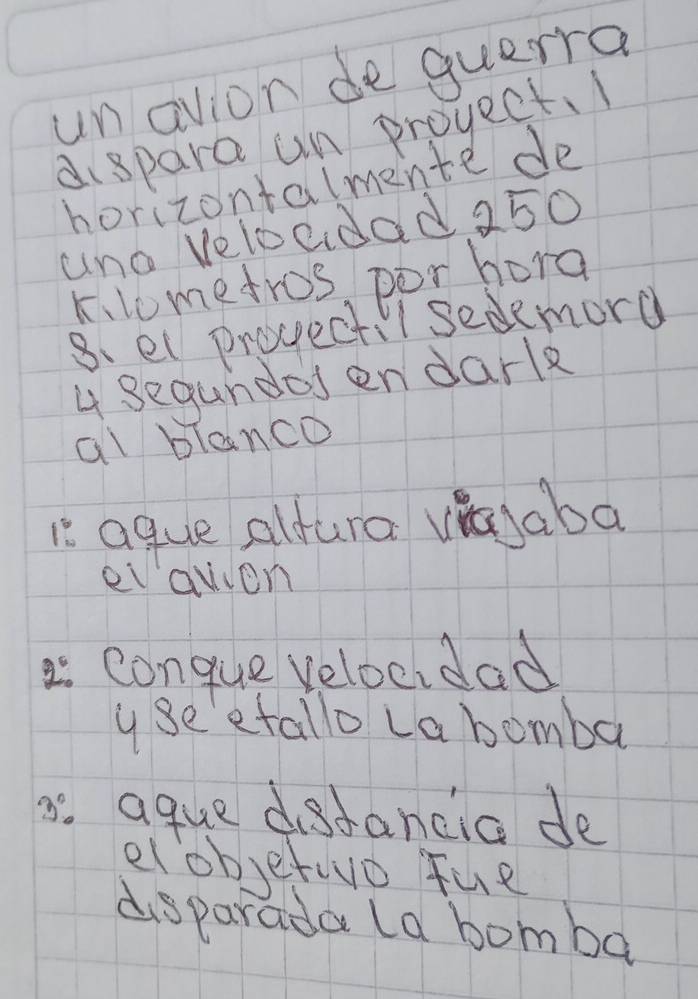 un avion de guerra
dispara un proyectil
horizontalmente de
una velocidad 250
Kilometros por hora
si el proyectil sedemora
4 segundos en darle
al blanco
1: aque altura viajaba
el avion
2: conque velocidad
y se etallo la bomba
3: aque distancia de
el objetivo fue
disparada la bomba